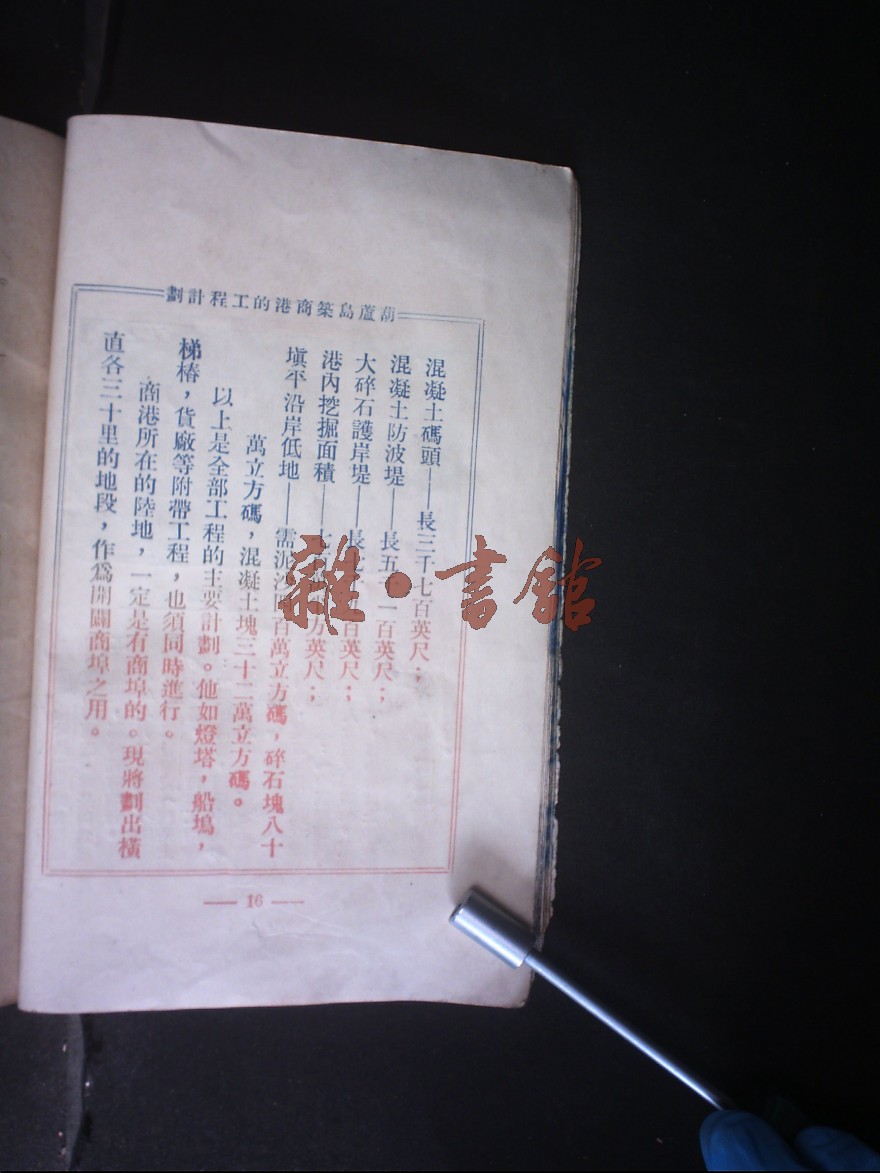 葫蘆島築商港的工程計劃
混凝土碼頭——長三千七百英尺；
混凝土防波堤——長五 一百英尺；
大碎石護岸堤——長 百英尺；
港內挖掘面積——七 方英尺；
塡平沿岸低地——需泥沙 百萬立方碼，碎石塊八十
萬立方碼，混凝土塊三十二萬立方碼。
以上是全部工程的主要計劃。他如燈塔，船塢，
梯樁，貨廠等附帶工程，也須同時進行。
商港所在的陸地，一定是有商埠的。現將劃出橫
直各三十里的地段，作爲開闢商埠之用。
— 16 —
雜·書館